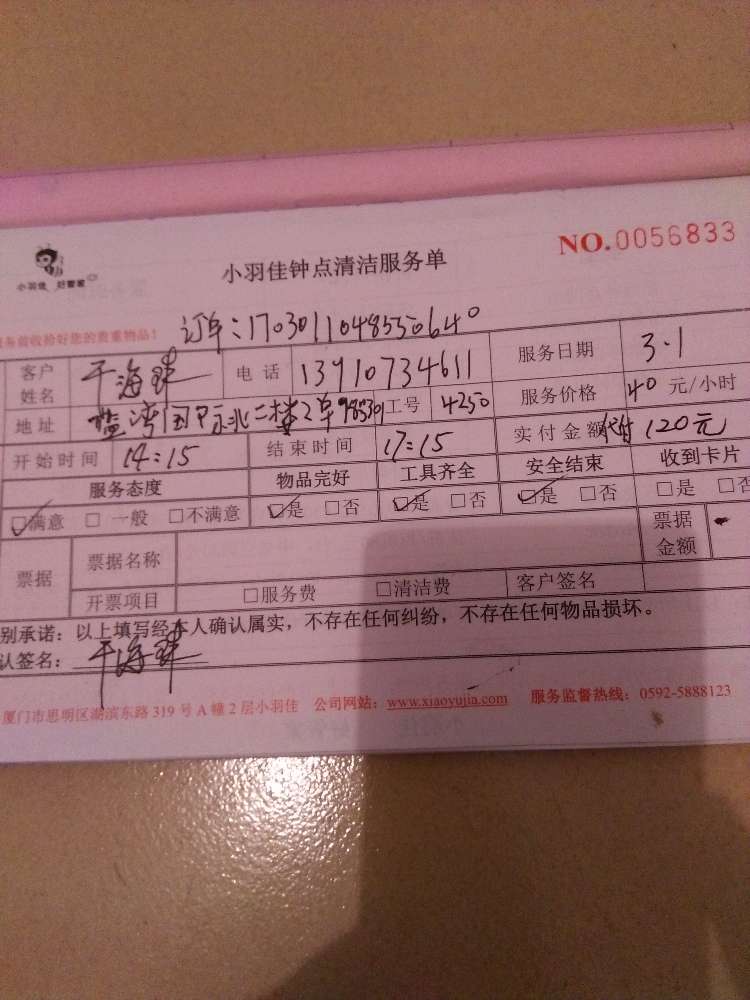 小羽佳 好管家
小羽佳钟点清洁服务单
NO.0056833
务前收拾好您的贵重物品！
订单：17030110485550640
客户姓名 于海 电话 13910734611 服务日期 3.1
地址 湾国 北二楼2单 工号 4250 服务价格 40 元/小时
开始时间 14:15 结束时间 17:15 实付金额 代付 120元
服务态度 物品完好 工具齐全 安全结束 收到卡片
☑满意 □ 一般 □不满意 ☑是 □否 ☑是 □否 ☑是 □否 □是 □否
票据 票据名称 票据金额
开票项目 □服务费 □清洁费 客户签名
别承诺：以上填写经本人确认属实，不存在任何纠纷，不存在任何物品损坏。
认签名： 于海
厦门市思明区湖滨东路 319 号 A 幢 2 层小羽佳 公司网站：www.xiaoyujia.com 服务监督热线：0592-5888123